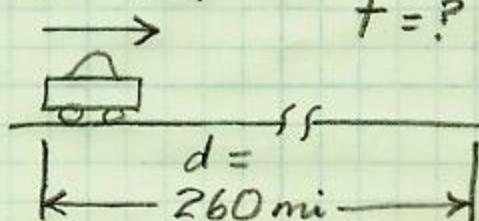 t = ?
d =
260 mi